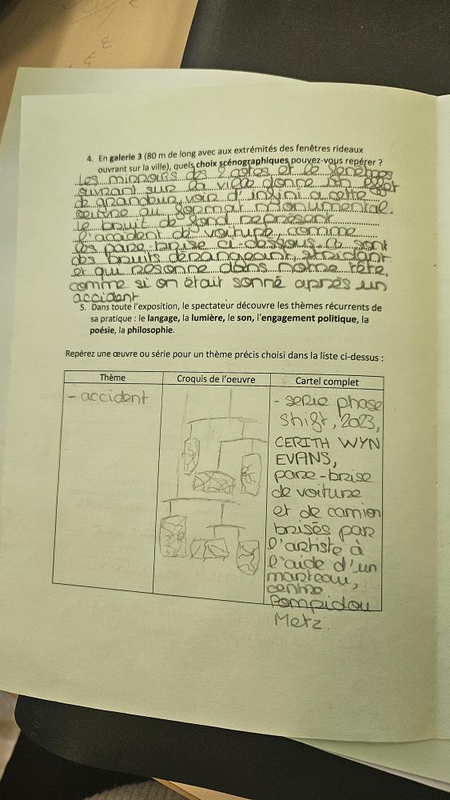 4. En galerie 3 (80 m de long avec aux extrémités des fenêtres rideaux
ouvrant sur la ville), quels choix scénographiques pouvez-vous repérer ?
Les miroirs des 2 côtés et les fenêtres
ouvrant sur la ville donne un effet
de grandeur, voir d'infini a cette
oeuvre au format monumental.
Le bruit de fond représent
l'accident de voiture, comme
les pare brise ci-dessous. Ce sont
des bruits dérangeant, stridant
et qui resonne dans notre tête,
comme si on était sonné après un
accident
5. Dans toute l'exposition, le spectateur découvre les thèmes récurrents de
sa pratique : le langage, la lumière, le son, l'engagement politique, la
poésie, la philosophie.
Repérez une œuvre ou série pour un thème précis choisi dans la liste ci-dessus :
Thème Croquis de l'oeuvre Cartel complet
- accident
- serie phase
shift, 2023,
CERITH WYN
EVANS,
pare-brise
de voiture
et de camion
brisés par
l'artiste à
l'aide d'un
marteau,
centre
Pompidou
Metz.